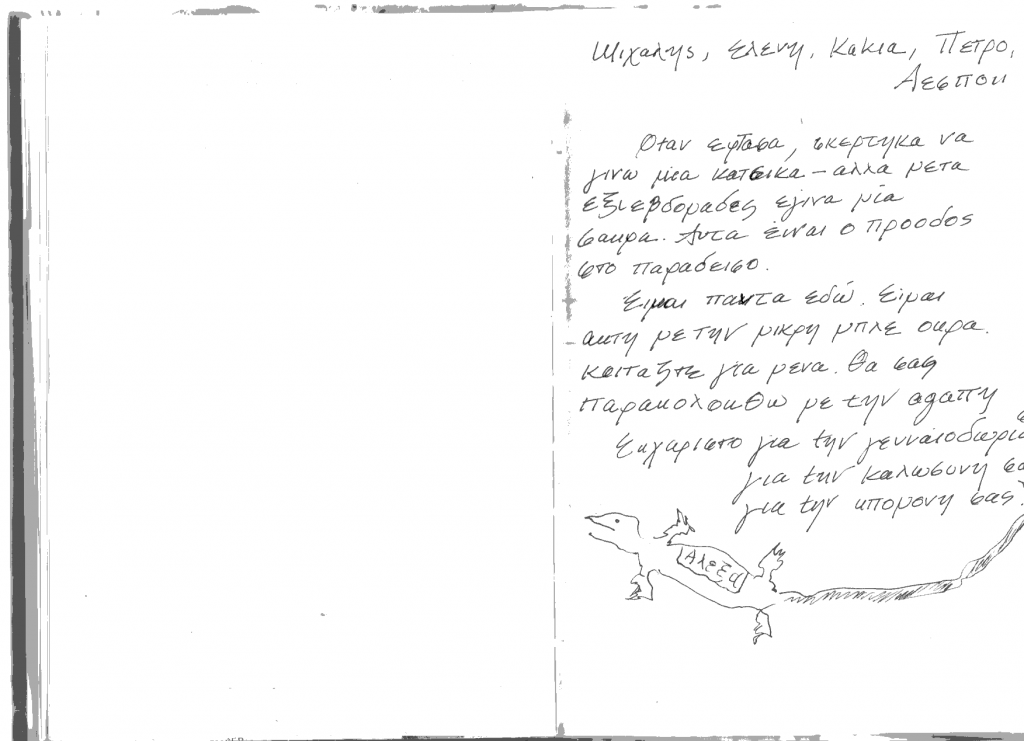 Μιχαλης, Ελενη, Κακια, Πετρο,
Δεσποη
Οταν εφτασα, σκερτηκα να
γινω μια κατσικα – αλλα μετα
εξι εβδομαδες εγινα μία
σαυρα. Αυτα είναι ο προοδος
στο παραδεισο.
Ειμαι παντα εδώ. Είμαι
αυτη με την μικρη μπλε ουρα.
Κοιταξτε για μενα. Θα σας
παρακολουθω με την αγαπη
Ευχαριστο για την γενναιοδωρι
για την καλωσυνη σα
για την υπομονη σας.
Αλεξα